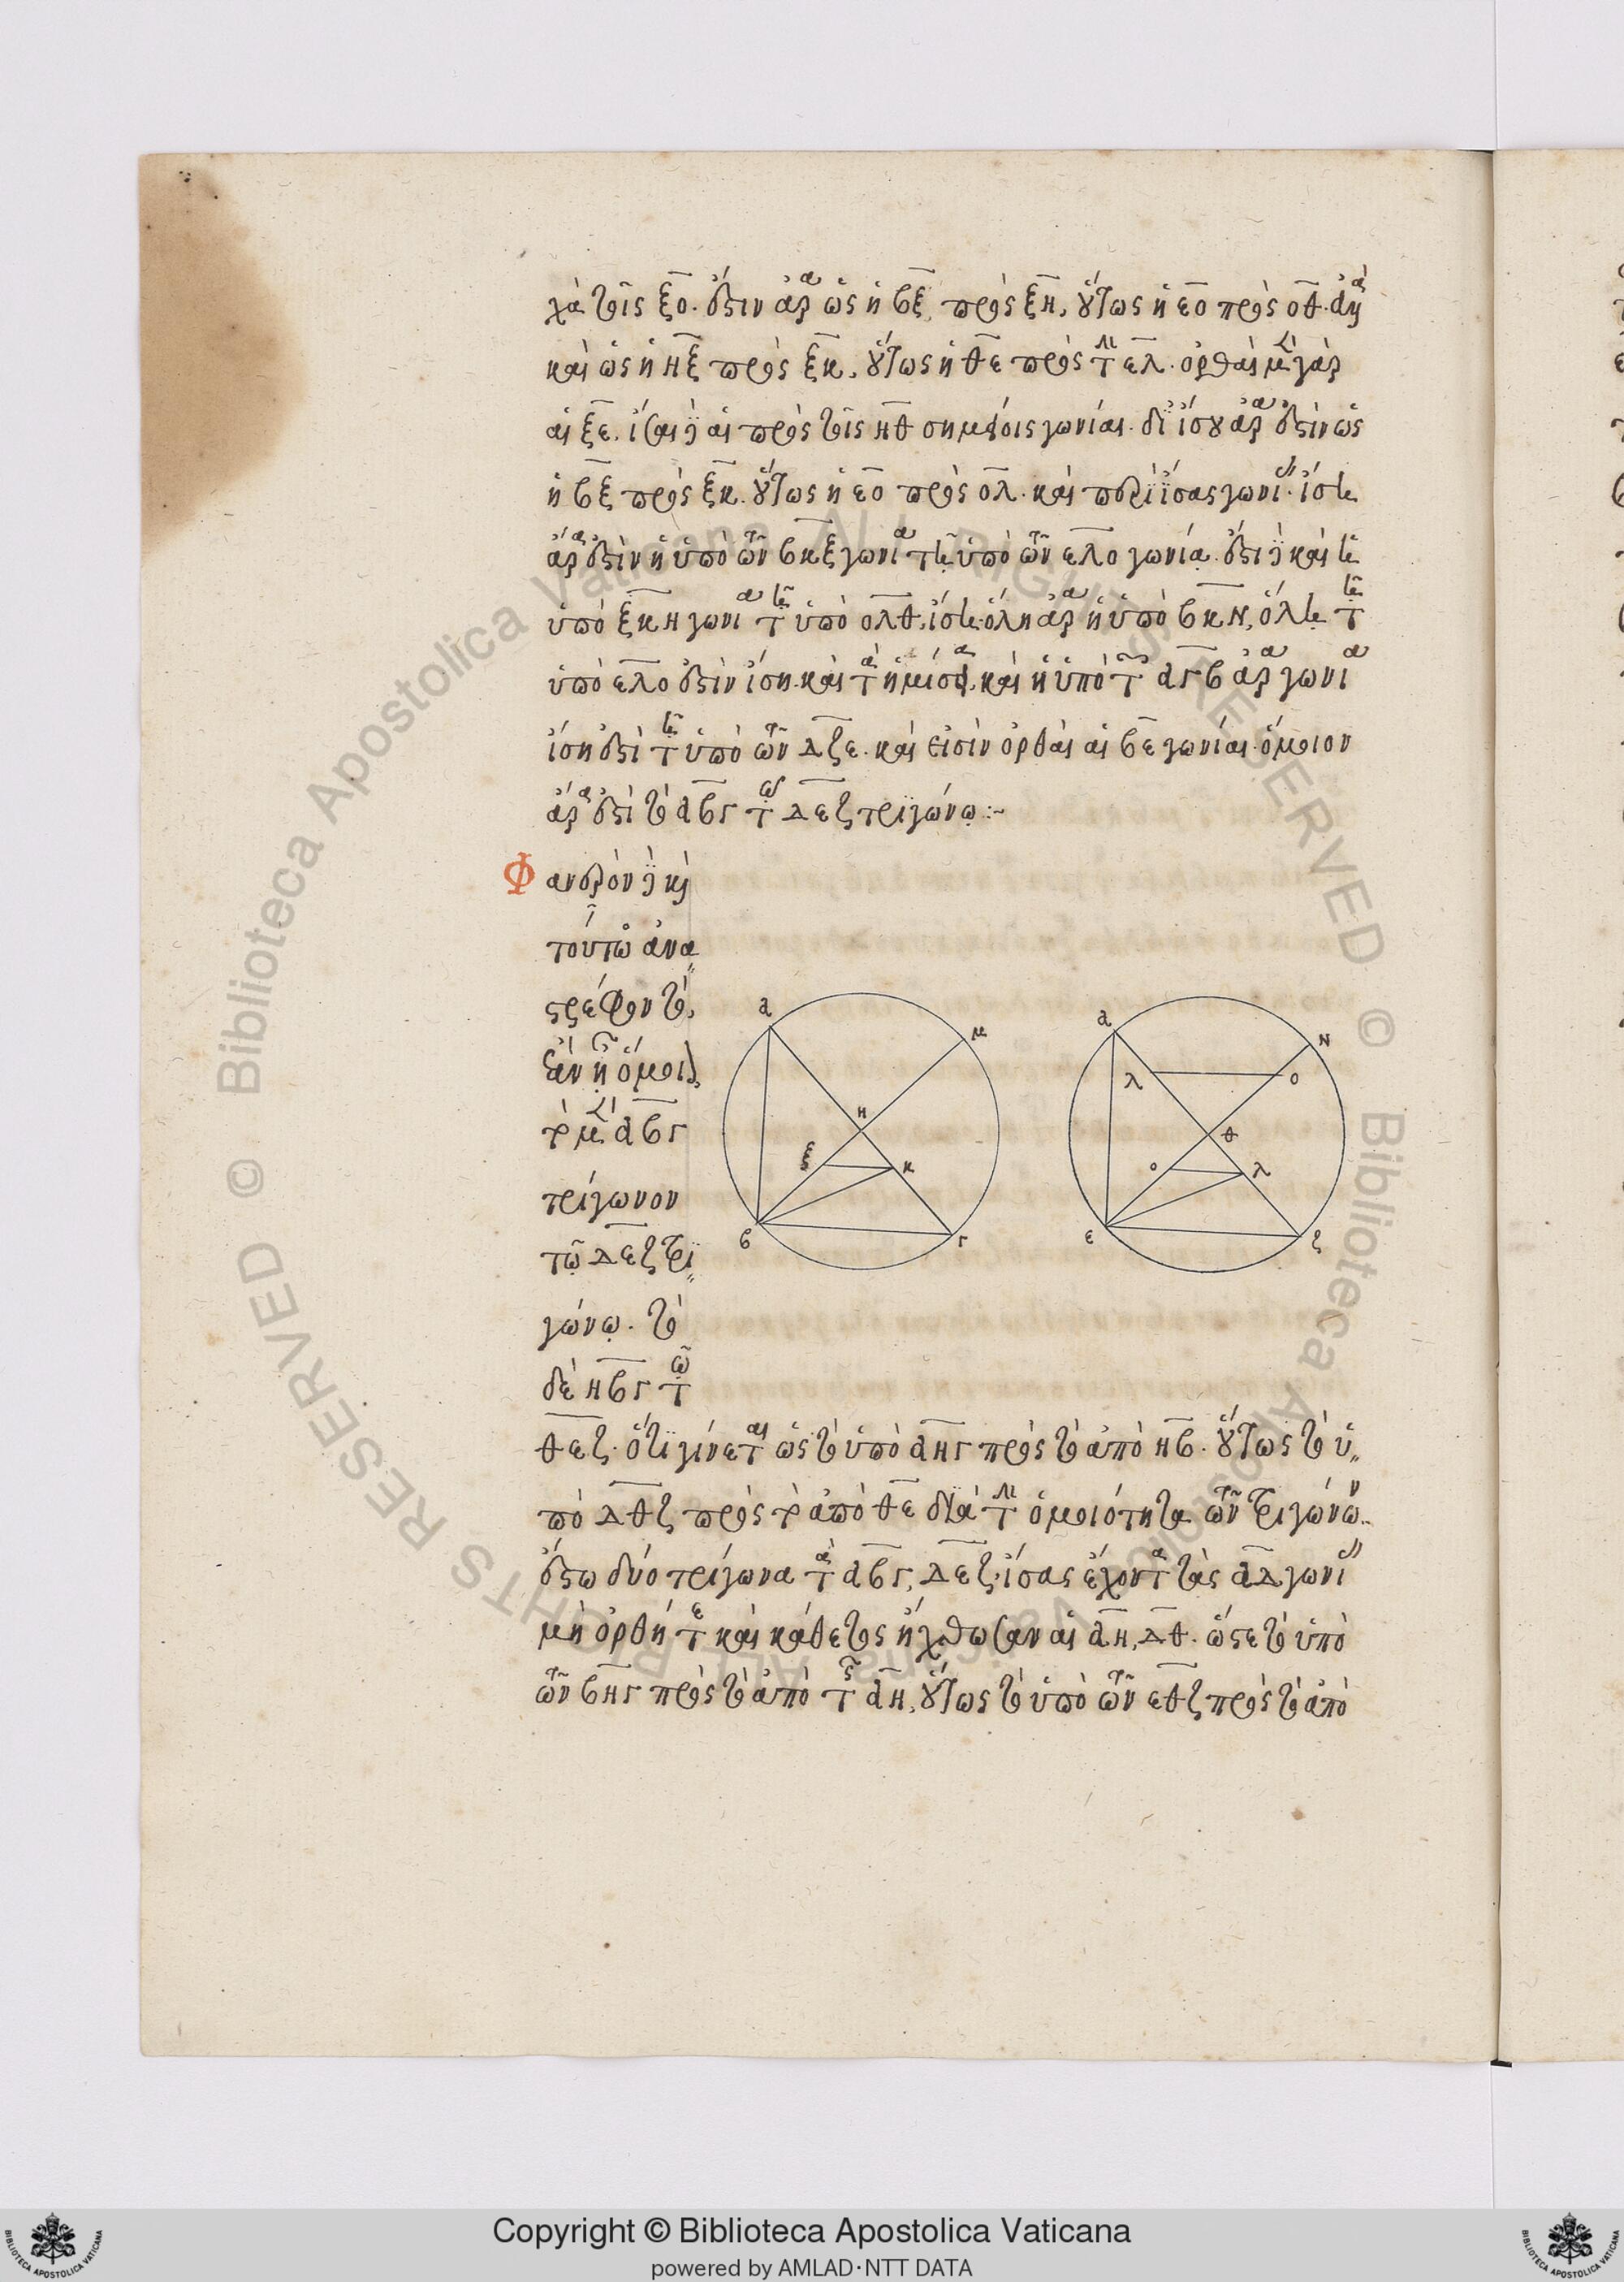 χα τοῖς ξο. ἔστιν ἄρα ὡς ἡ βξ πρὸς ξη, οὕτως ἡ εο πρὸς οθ. ἀλλὰ
καὶ ὡς ἡ ηξ πρὸς ξκ, οὕτως ἡ θε πρὸς τὴν ελ. ὀρθαὶ μὲν γὰρ
αἱ ξε. ἴσαι δὲ αἱ πρὸς τοῖς ηθ σημείοις γωνίαι. δι ἴσου ἄρα ἐστὶν ὡς
ἡ βξ πρὸς ξκ. οὕτως ἡ εο πρὸς ολ. καὶ περὶ ἴσας γωνίας. ἴση
ἄρα ἐστὶν ἡ ὑπὸ τῶν βκξ γωνία τῇ ὑπὸ τῶν ελο γωνίᾳ. ἔστι δὲ καὶ ἡ
ὑπὸ ξκη γωνία τῇ ὑπὸ ολθ, ἴση. ὅλη ἄρα ἡ ὑπὸ βκν, ὅλῃ τῇ
ὑπὸ ελο ἐστὶν ἴση. καὶ τὰ ἡμίση. καὶ ἡ ὑπὸ τῶν αγβ ἄρα γωνία
ἴση ἐστὶ τῇ ὑπὸ τῶν δζε. καὶ εἰσὶν ὀρθαὶ αἱ βε γωνίαι. ὅμοιον
ἄρα ἐστὶ τὸ αβγ τῷ δεζ τριγώνῳ :~
Φανερὸν δὲ καὶ
τούτῳ ἀνα
στρέφον τὸ,
ἐὰν ᾖ ὅμοιον
τὸ μὲν αβγ
τρίγωνον
τῷ δεζ τρι
γώνῳ. τὸ
δὲ ηβγ τῷ
θεζ. ὅτι γίνεται ὡς τὸ ὑπὸ αηγ πρὸς τὸ ἀπὸ ηβ. οὕτως τὸ ὑ
πὸ δθζ πρὸς τὸ ἀπὸ θε διὰ τὴν ὁμοιότητα τῶν τριγώνων.
ἔστω δύο τρίγωνα τὰ αβγ, δεζ. ἴσας ἔχοντα τὰς αδ γωνίας
μὴ ὀρθή τε καὶ κάθετος ἤχθωσαν αἱ αη, δθ. ὥστε τὸ ὑπὸ
τῶν βηγ πρὸς τὸ ἀπὸ τῆς αη, οὕτως τὸ ὑπὸ τῶν εθζ πρὸς τὸ ἀπὸ
α
μ
η
ξ
κ
β
γ
α
ν
λ
ο
θ
ο
λ
ε
ζ
© Biblioteca Apostolica Vaticana ALL RIGHTS RESERVED
© Biblioteca Apostolica Vaticana ALL RIGHTS RESERVED
Copyright © Biblioteca Apostolica Vaticana
powered by AMLAD·NTT DATA